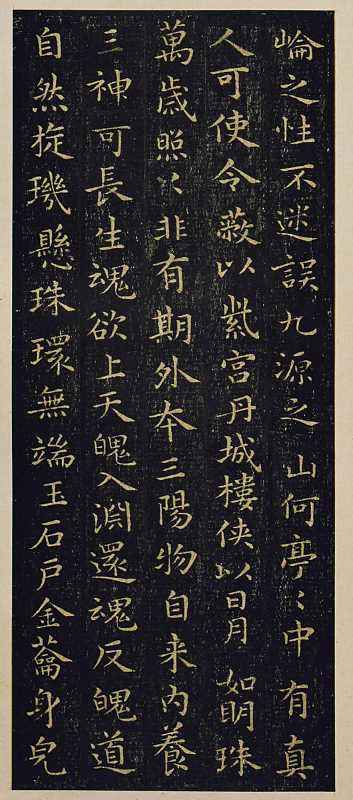 崘之性不迷誤九源之山何亭〻中有真
人可使令蔽以紫宫丹城樓侠以日月如明珠
萬歲照以非有期外本三陽物自来内養
三神可長生魂欲上天魄入淵還魂反魄道
自然㨔璣懸珠環無端玉石戶金蘥身皃